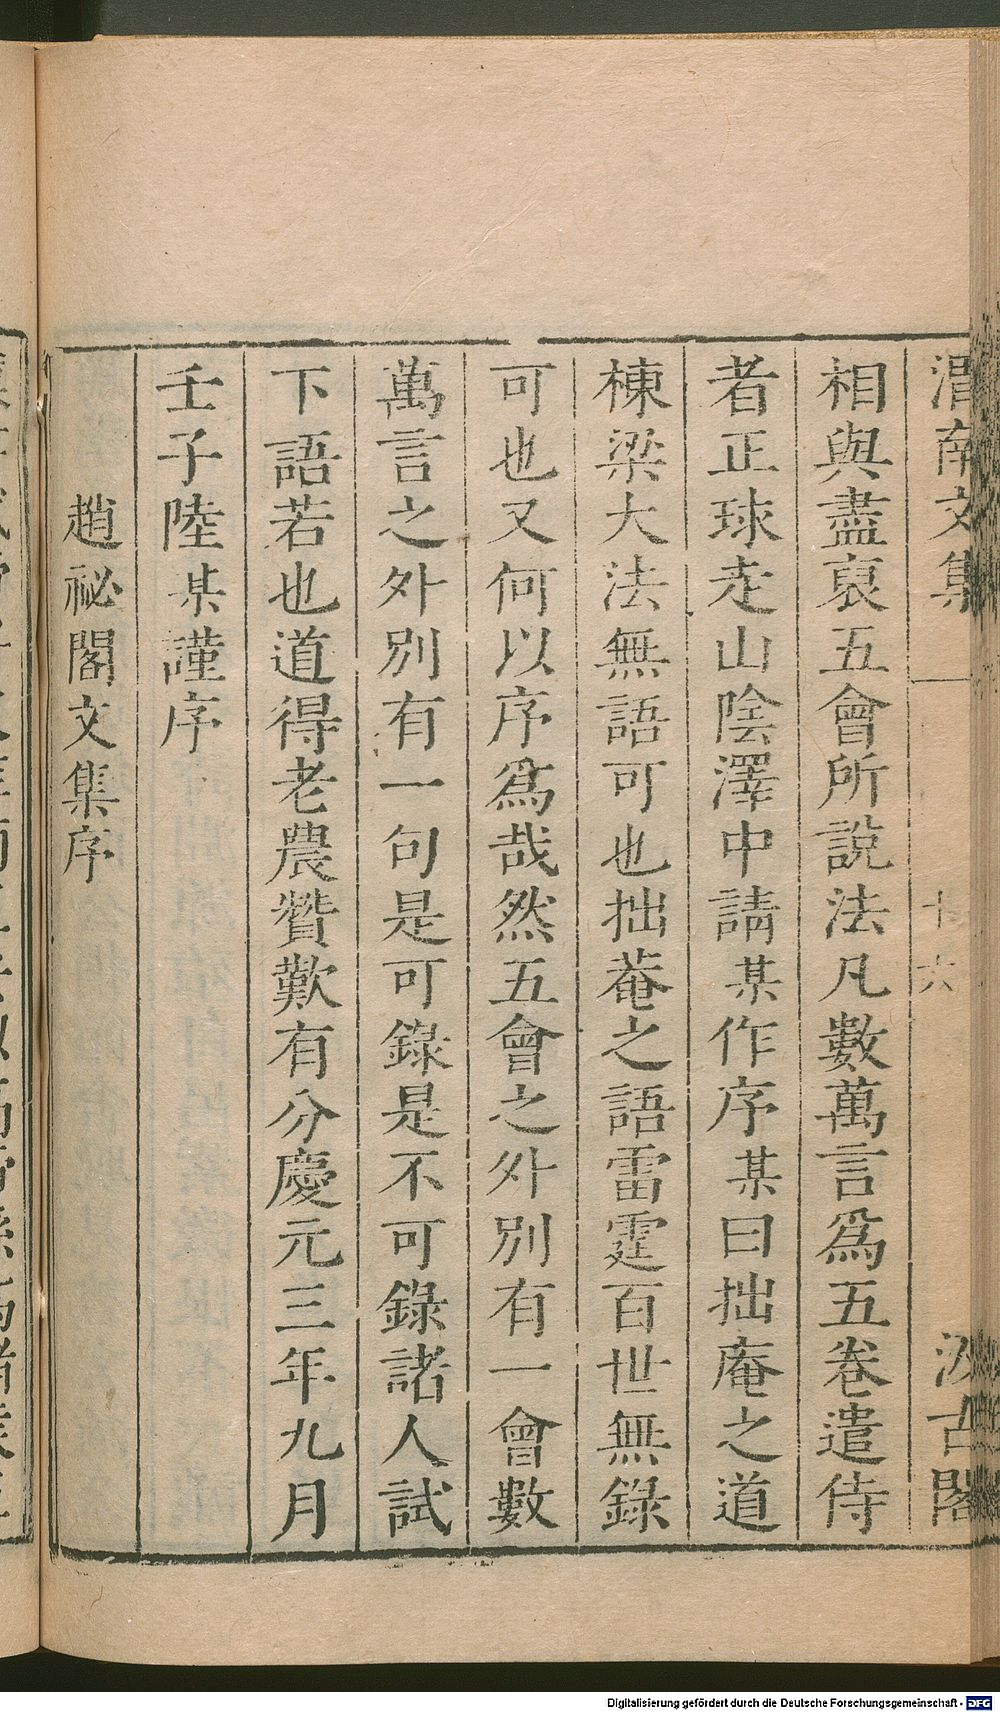 渭南文集 十六 汲古閣
相與盡裒五會所說法凡數萬言爲五卷遣侍
者正球走山陰澤中請某作序某曰拙庵之道
棟梁大法無語可也拙菴之語雷霆百世無錄
可也又何以序爲哉然五會之外別有一會數
萬言之外別有一句是可錄是不可錄諸人試
下語若也道得老農贊歎有分慶元三年九月
壬子陸某謹序
趙祕閣文集序
Digitalisierung gefördert durch die Deutsche Forschungsgemeinschaft - DFG